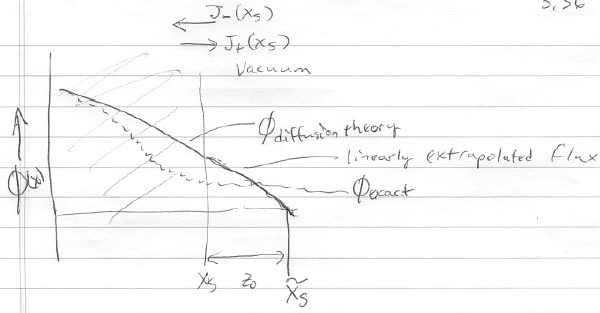 5,56
J₋(xₛ)
J₊(xₛ)
Vacuum
ϕ diffusion theory
linearly extrapolated flux
ϕ(x)
ϕexact
xₛ z₀ x̃ₛ